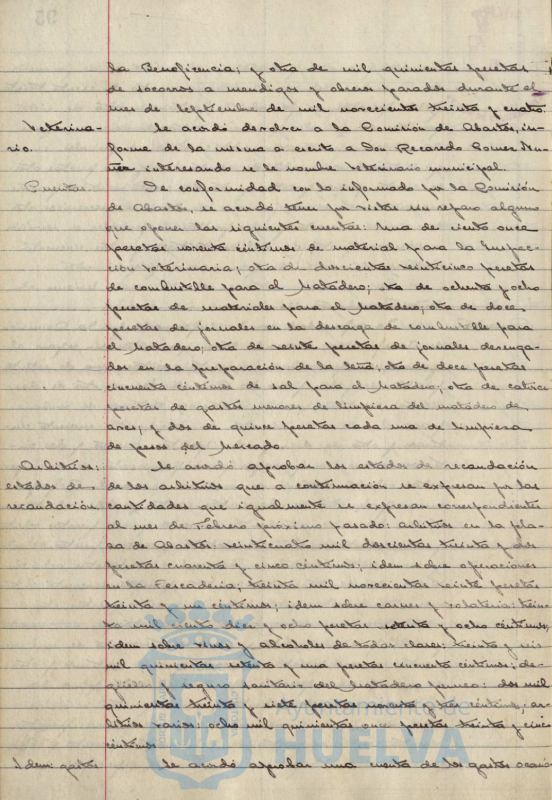 la Beneficencia; y otra de mil quinientas pesetas
de socorros a mendigos y obreros parados durante el
mes de Septiembre de mil novecientos treinta y cuatro.
Veterina-
rio.
Se acordó devolver a la Comisión de Abastos, in-
forme de la misma a escrito a Don Recaredo Gomez Nu-
ñez interesando se le nombre Veterinario municipal.
Cuentas.
De conformidad con lo informado por la Comisión
de Abastos, se acordó tener por vistas sin reparo alguno
que oponer las siguientes cuentas: una de ciento once
pesetas noventa céntimos de material para la Inspec-
ción veterinaria; otra de doscientas veinticinco pesetas
de combustible para el Matadero; otra de ochenta y ocho
pesetas de materiales para el Matadero; otra de doce
pesetas de jornales en la descarga de combustible para
el Matadero; otra de veinte pesetas de jornales devenga-
dos en la preparación de la leña; otra de doce pesetas
cincuenta céntimos de sal para el Matadero; otra de catorce
pesetas de gastos menores de limpieza del matadero de
aves; y dos de quince pesetas cada una de limpieza
de pesos del Mercado.
Arbitrios:
estados de
recaudación
Se acordó aprobar los estados de recaudación
de los arbitrios que a continuación se expresan por las
cantidades que igualmente se expresan correspondientes
al mes de Febrero próximo pasado: arbitrios en la pla-
za de Abastos: veinticuatro mil doscientas treinta y dos
pesetas cuarenta y cinco céntimos; idem sobre operaciones
en la Pescaderia; treinta mil novecientas veinte pesetas
treinta y un céntimos; idem sobre carnes y volateria: trein-
ta mil ciento diez y ocho pesetas setenta y ocho céntimos;
idem sobre vinos y alcoholes de todas clases: treinta y seis
mil quinientas setenta y una pesetas cincuenta céntimos; de-
güello y registro sanitario del Matadero publico: dos mil
quinientas treinta y siete pesetas noventa y tres céntimos; ar-
bitrios varios: ocho mil quinientas once pesetas treinta y cinco
céntimos.
Idem: gastos
Se acordó aprobar una cuenta de los gastos ocasio-
HUELVA